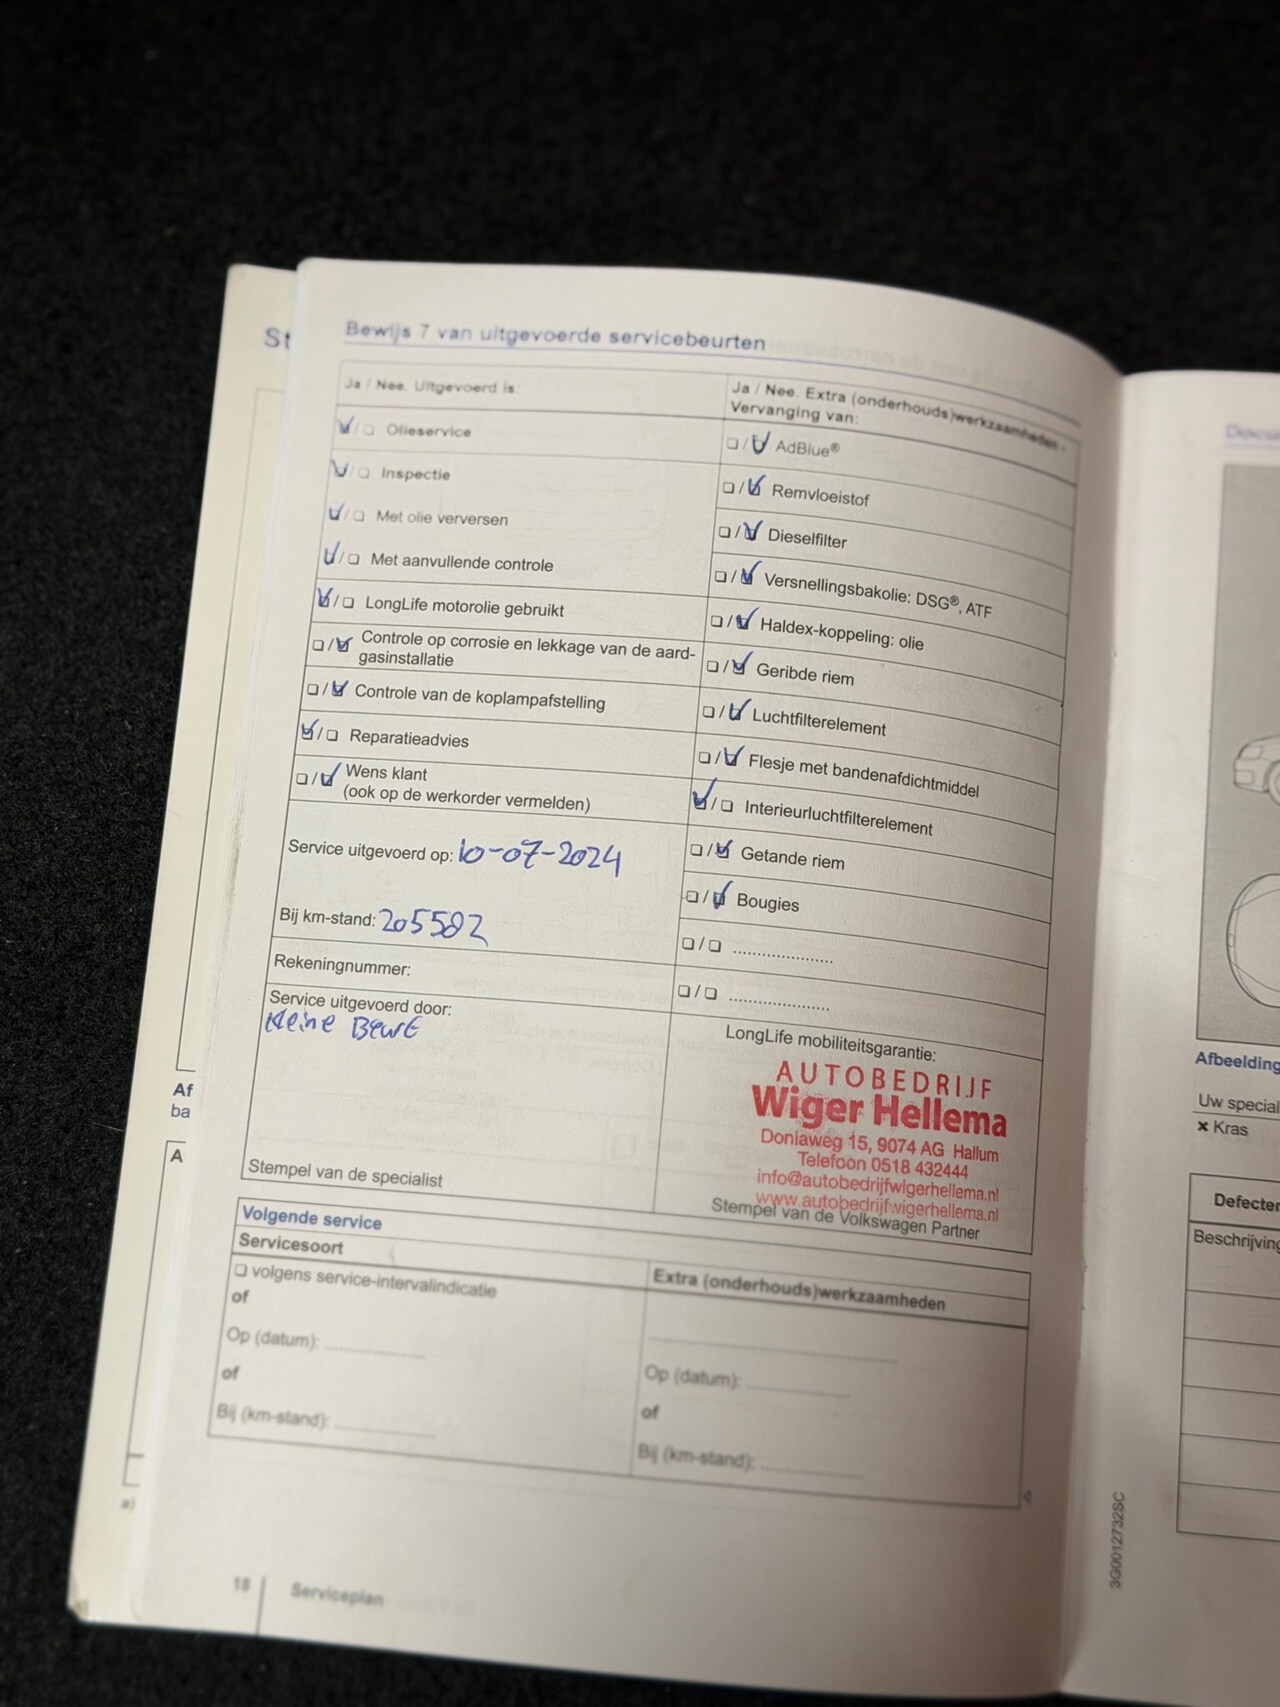 St
Bewijs 7 van uitgevoerde servicebeurten
Ja / Nee. Uitgevoerd is:
☑/❏ Olieservice
☑/❏ Inspectie
☑/❏ Met olie verversen
☑/❏ Met aanvullende controle
☑/❏ LongLife motorolie gebruikt
❏/☑ Controle op corrosie en lekkage van de aard-
gasinstallatie
❏/☑ Controle van de koplampafstelling
☑/❏ Reparatieadvies
❏/☑ Wens klant
(ook op de werkorder vermelden)
Service uitgevoerd op: 10-07-2024
Bij km-stand: 205582
Rekeningnummer:
Service uitgevoerd door:
Kleine Beurt
Stempel van de specialist
Ja / Nee. Extra (onderhouds)werkzaamheden -
Vervanging van:
❏/☑ AdBlue®
❏/☑ Remvloeistof
❏/☑ Dieselfilter
❏/☑ Versnellingsbakolie: DSG®, ATF
❏/☑ Haldex-koppeling: olie
❏/☑ Geribde riem
❏/☑ Luchtfilterelement
❏/☑ Flesje met bandenafdichtmiddel
☑/❏ Interieurluchtfilterelement
❏/☑ Getande riem
❏/☑ Bougies
❏/❏ ......................
❏/❏ ......................
LongLife mobiliteitsgarantie:
AUTOBEDRIJF
Wiger Hellema
Doniaweg 15, 9074 AG Hallum
Telefoon 0518 432444
info@autobedrijfwigerhellema.nl
www.autobedrijfwigerhellema.nl
Stempel van de Volkswagen Partner
Volgende service
Servicesoort
❏ volgens service-intervalindicatie
of
Op (datum): ......................
of
Bij (km-stand): ......................
Extra (onderhouds)werkzaamheden
......................
Op (datum): ......................
of
Bij (km-stand): ......................
18 Serviceplan
Af
ba
A
a)
3G0012732SC
Afbeelding
Uw special
× Kras
Defecten
Beschrijving